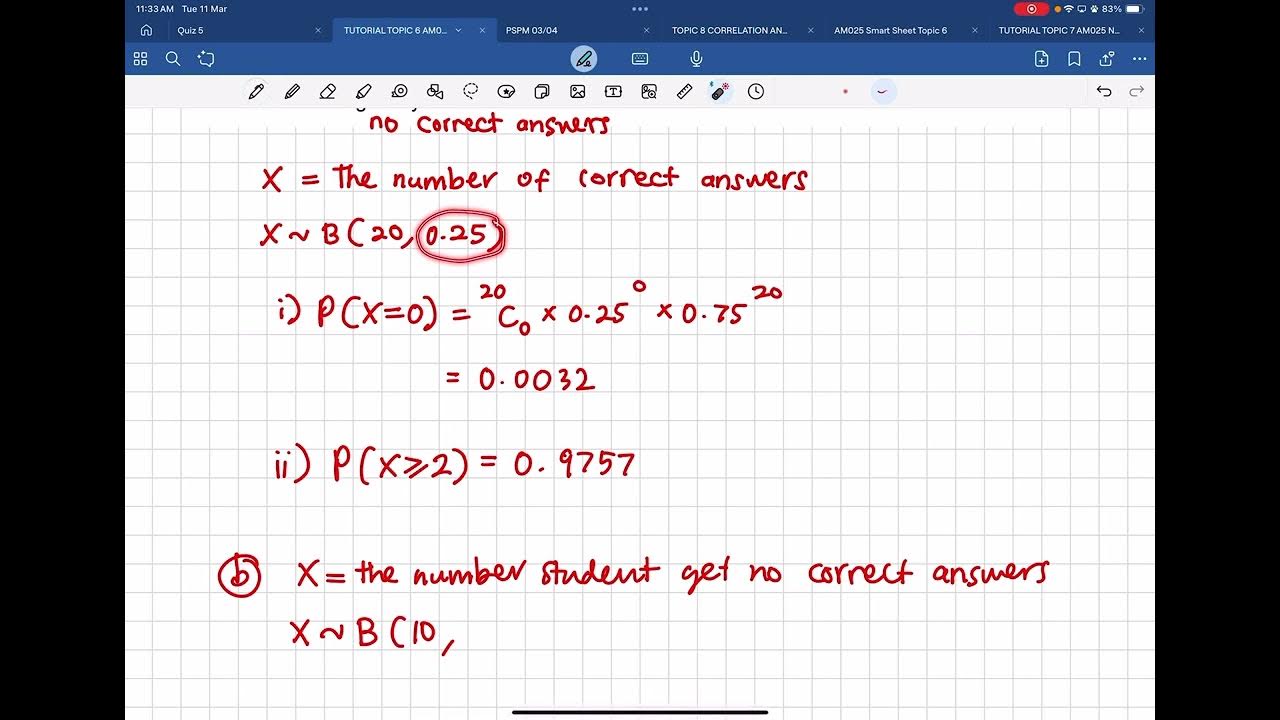 11:33 AM Tue 11 Mar
83%
Quiz 5
TUTORIAL TOPIC 6 AM0...
PSPM 03/04
TOPIC 8 CORRELATION AN...
AM025 Smart Sheet Topic 6
TUTORIAL TOPIC 7 AM025 N...
no correct answers
X = the number of correct answers
X ~ B(20, 0.25)
i) P(X=0) = ²⁰C₀ × 0.25⁰ × 0.75²⁰
= 0.0032
ii) P(X⩾2) = 0.9757
b X = the number student get no correct answers
X ~ B(10,